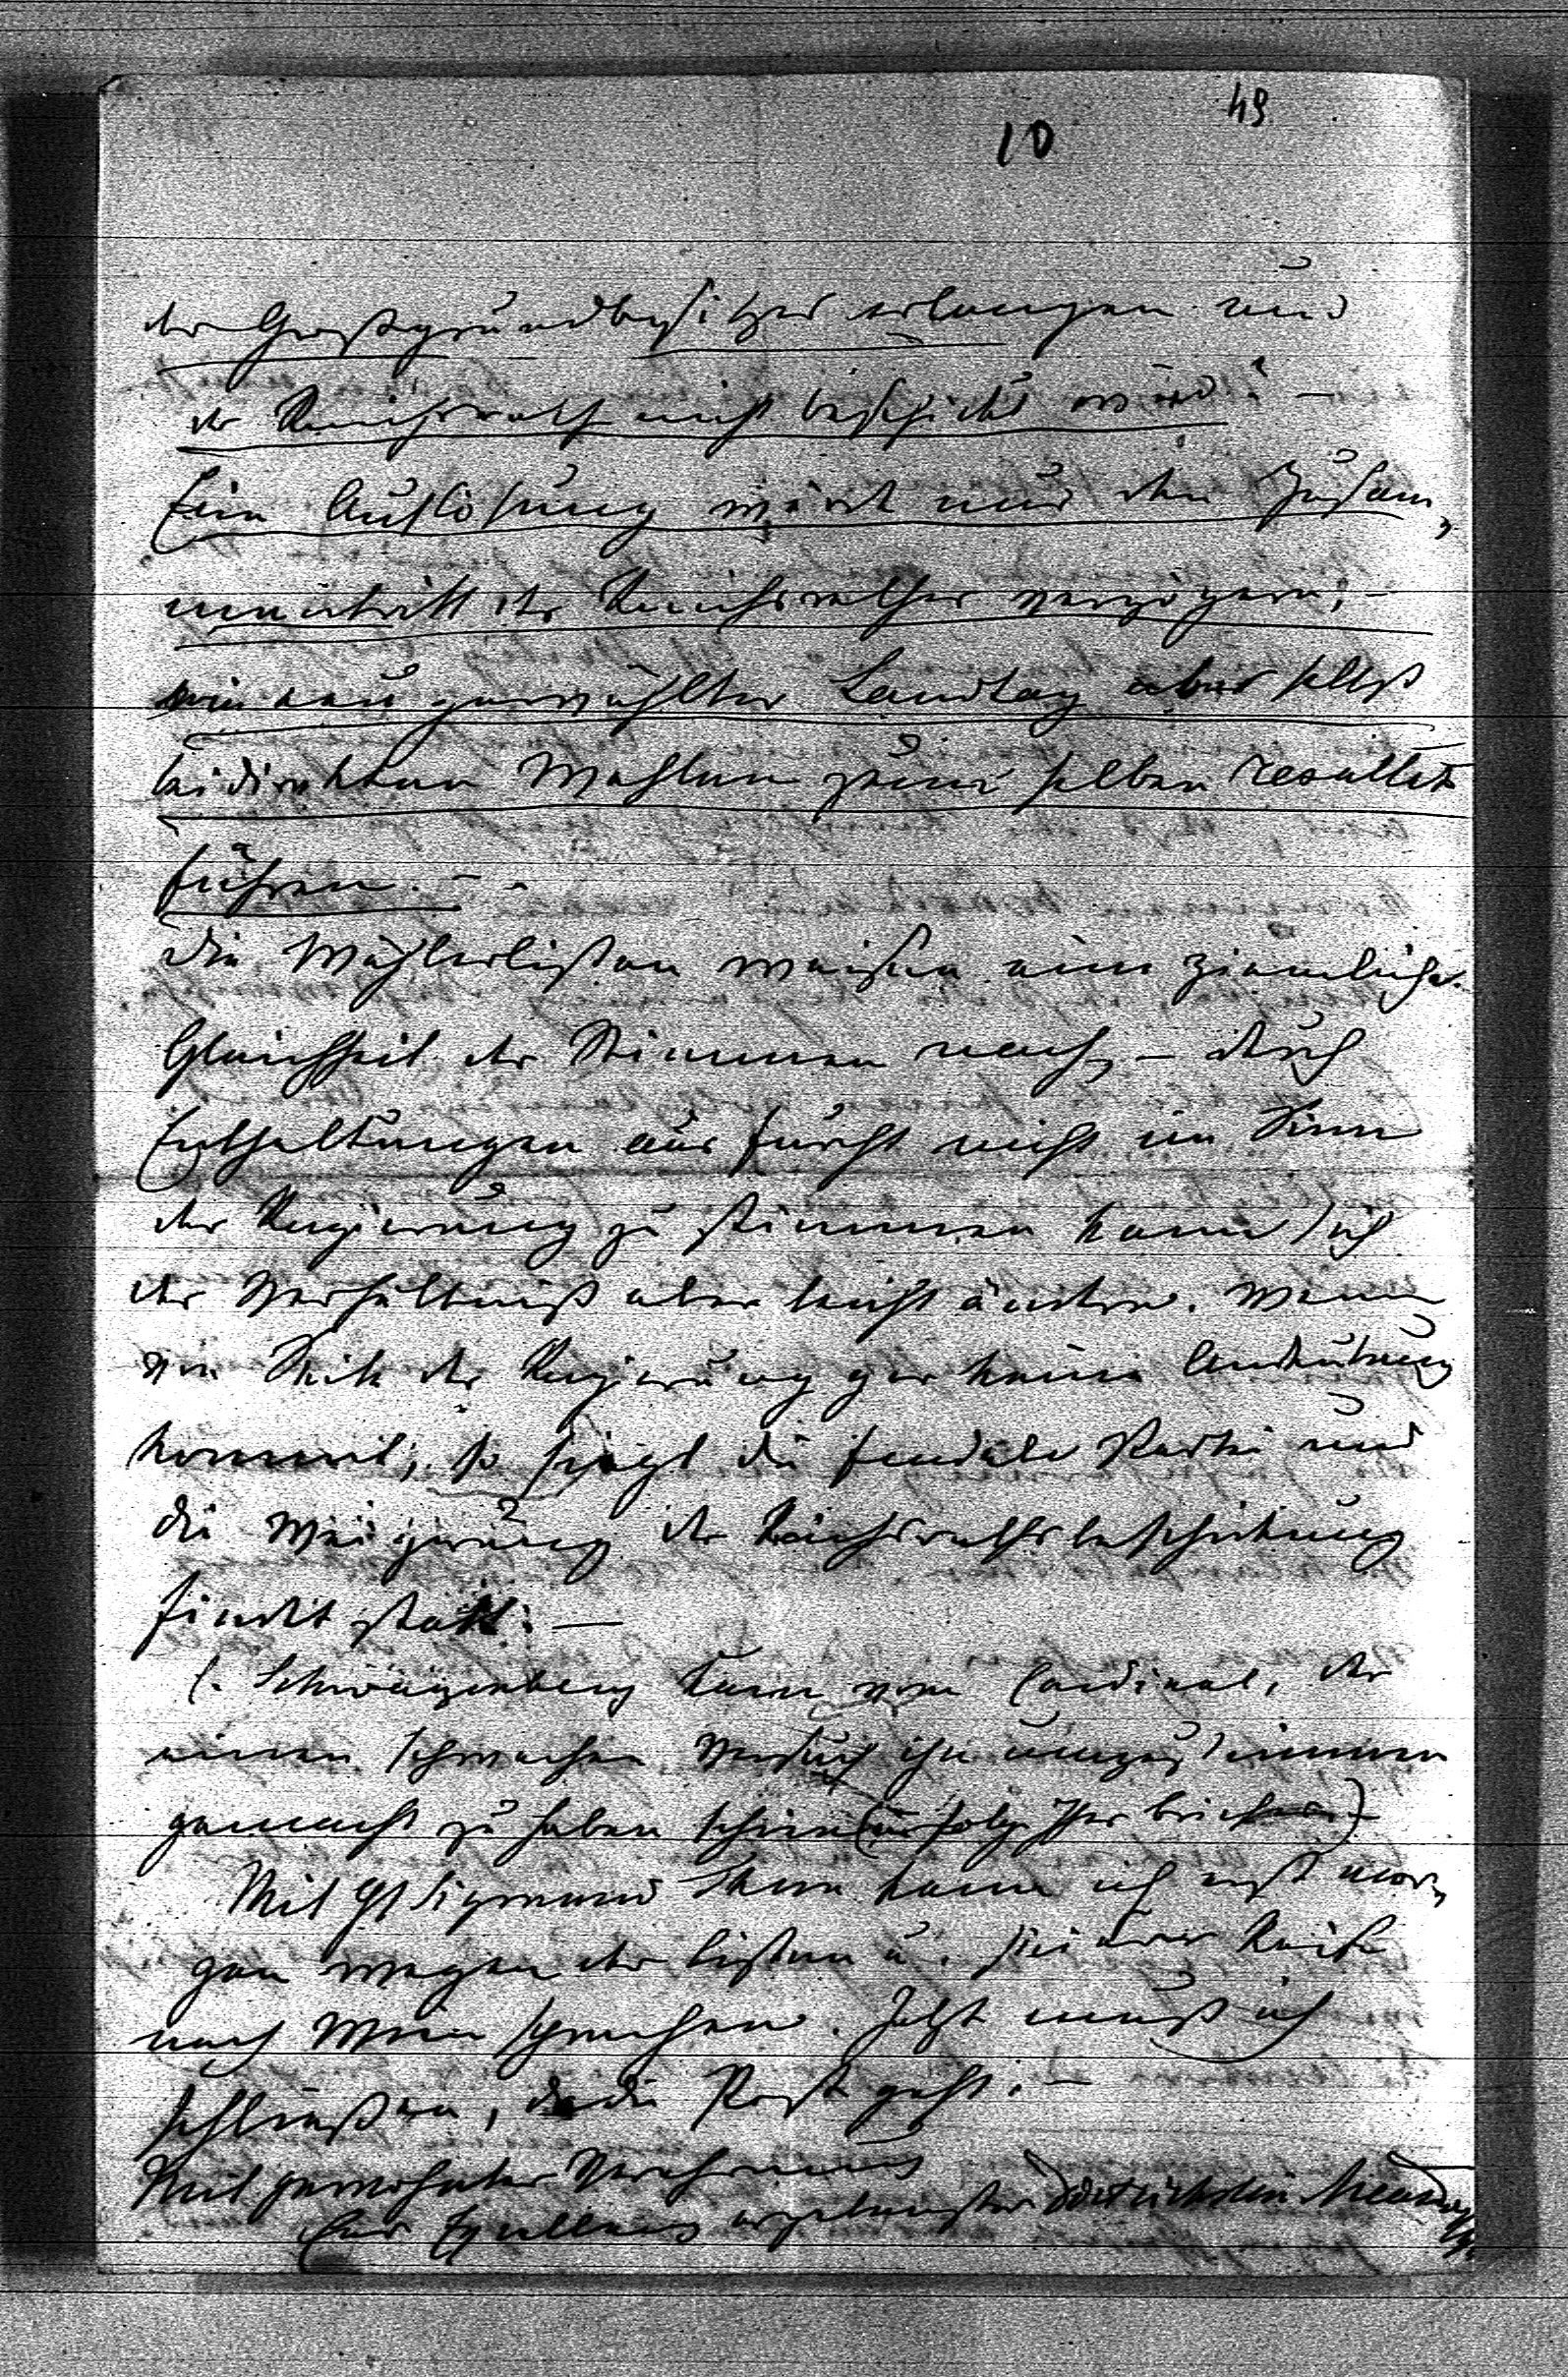 49
10
der Großgrundbesitzer erlangen und
der Reichsrath nicht beschickt wird. —
Eine Auflösung würde nur den Zusam„
mentritt des Reichsrathes verzögern, —
ein neu gewählter Landtag aber selbst
bei direkten Wahlen zum selben resultate
führen. —
Die Wählerlisten weisen eine ziemliche
Gleichheit der Stimmen nach, — durch
Enthaltungen aus Furcht nicht im Sinne
der Regierung zu stimmen kann sich
das Verhältniß aber leicht ändern. Wenn
von Seite der Regierung gar keine Andeutung
kommt, so siegt die feudale Partei und
die Weigerung der Reichsrathsbeschickung
findet statt. —
Schwarzenberg kam vom Cardinal, der
einen schwachen Versuch ihn umzustimmen
gemacht zu haben scheint (in folge Ihres briefes)
Mit Gf Sigmund Thun kann ich erst mor„
gen wegen der listen u. seiner Reise
nach Wien sprechen. Jetzt muß ich
schließen, da die Post geht. —
Mit gewohnter Verehrung
Euer Exzellenz ergebenster